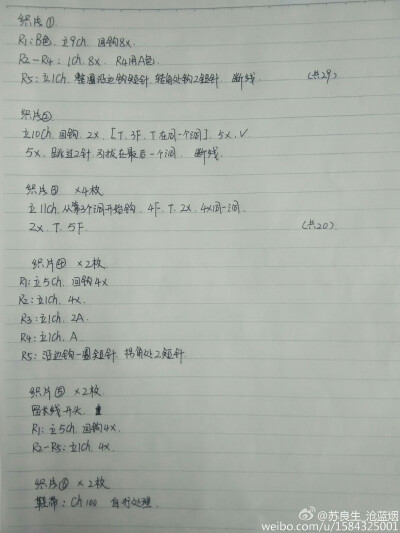 织片①
R1:B色、立9ch、回钩8x.
R2-R4:1ch.8x. R4用A色.
R5:立1ch.整圈沿边钩短针,转角处钩2短针. 断线. (共29)
织片②
立10ch.回钩.2x.[T.3F.T在同一个洞].5x,V.
5x,跳过2针,引拔在最后一个洞. 断线.
织片③ ×4枚
立11ch.从第3个洞开始钩.4F.T.2x.4x同一洞.
2x.T.5F. (共20)
织片④ ×2枚
R1:立5ch.回钩4x
R2:立1ch.4x.
R3:立1ch,2A
R4:立1ch,A
R5:沿边钩一圈短针,拐角处2短针
织片⑤ ×2枚
留长线开头.
R1:立5ch.回钩4x.
R2-R5:立1ch.4x.
织片⑥ ×2枚
鞋带:ch100 自行处理.
@苏良生_沧蓝烟
weibo.com/u/1584325001